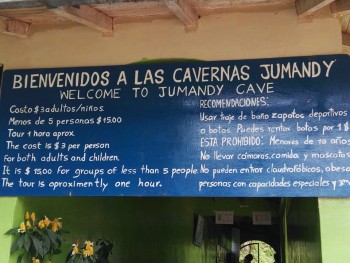 BIENVENIDOS A LAS CAVERNAS JUMANDY
WELCOME TO JUMANDY CAVE
Costo $3 adultos/niños.
Menos de 5 personas $15.00
Tour 1 hora aprox.
The cost is $3 per person
For both adults and children.
It is $ 15.00 for groups of less than 5 people.
The tour is aproximently one hour.
RECOMENDACIONES:
Usar traje de baño zapatos deportivos
o botas. Puedes rentar botas por 1$
ESTA PROHIBIDO: Menores de 10 años
No llevar cámaras, comida y mascotas
No pueden entrar claustrofóbicos, obesos
personas con capacidades especiales y